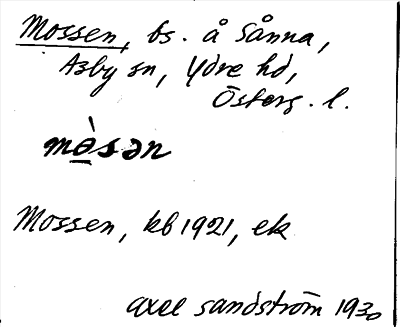 Mossen, bs. å Sånna,
Asby sn, Ydre hd,
Österg. l.
mɵ̠̀sən
Mossen, kb 1921, ek
Axel Sandström 1930